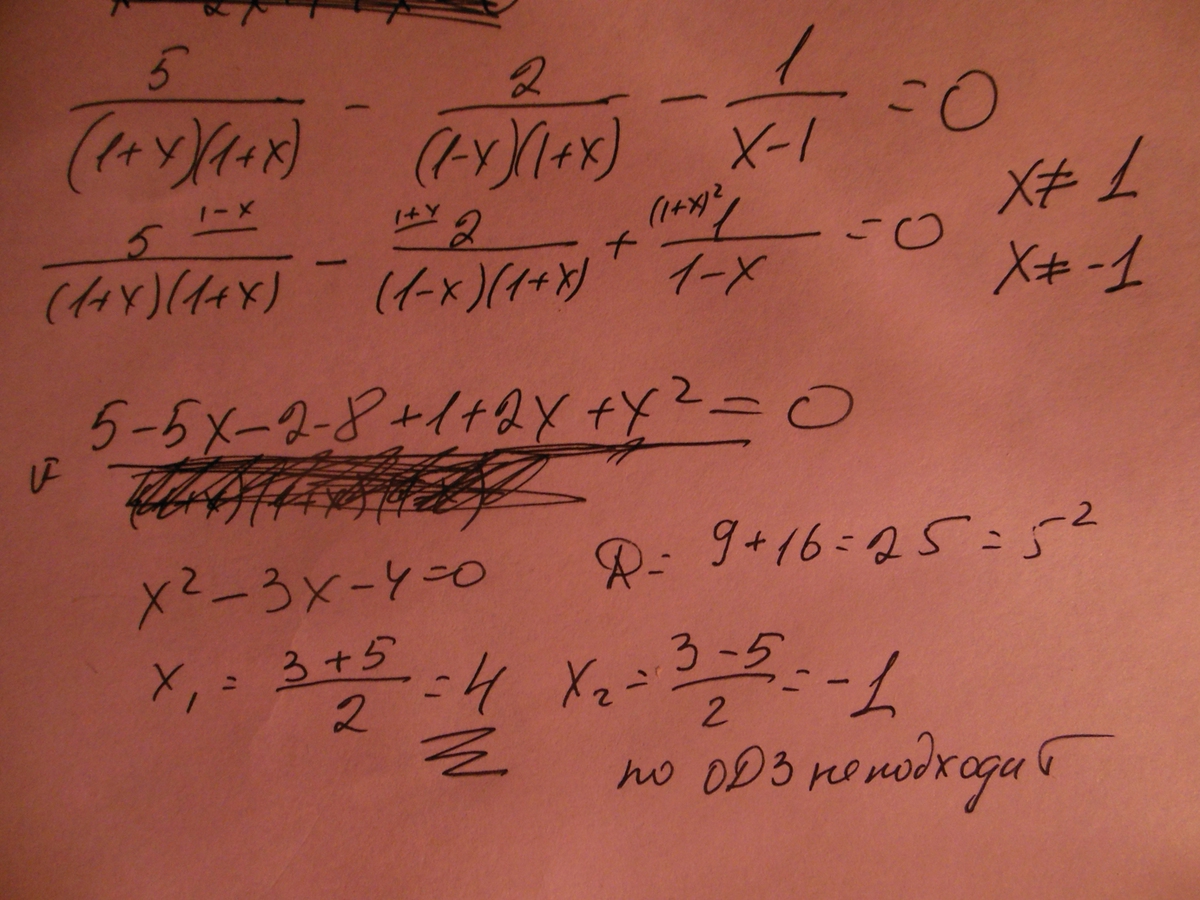 5/((1+x)(1+x)) - 2/((1-x)(1+x)) - 1/(x-1) = 0
x ≠ 1
5 1-x/((1+x)(1+x)) - 1+x 2/((1-x)(1+x)) + (1+x)² 1/(1-x) = 0
x ≠ -1
5-5x-2-8+1+2x+x² = 0
x²-3x-4=0 D = 9+16=25=5²
x₁ = (3+5)/2 = 4 x₂ = (3-5)/2 = -1
по ОДЗ не подходит